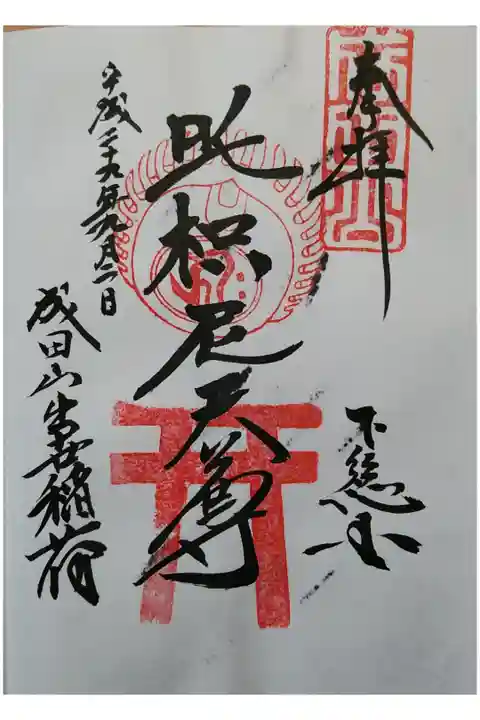 奉拝
下総国
吒枳尼天尊
平成二十九年九月二日
成田山出世稲荷